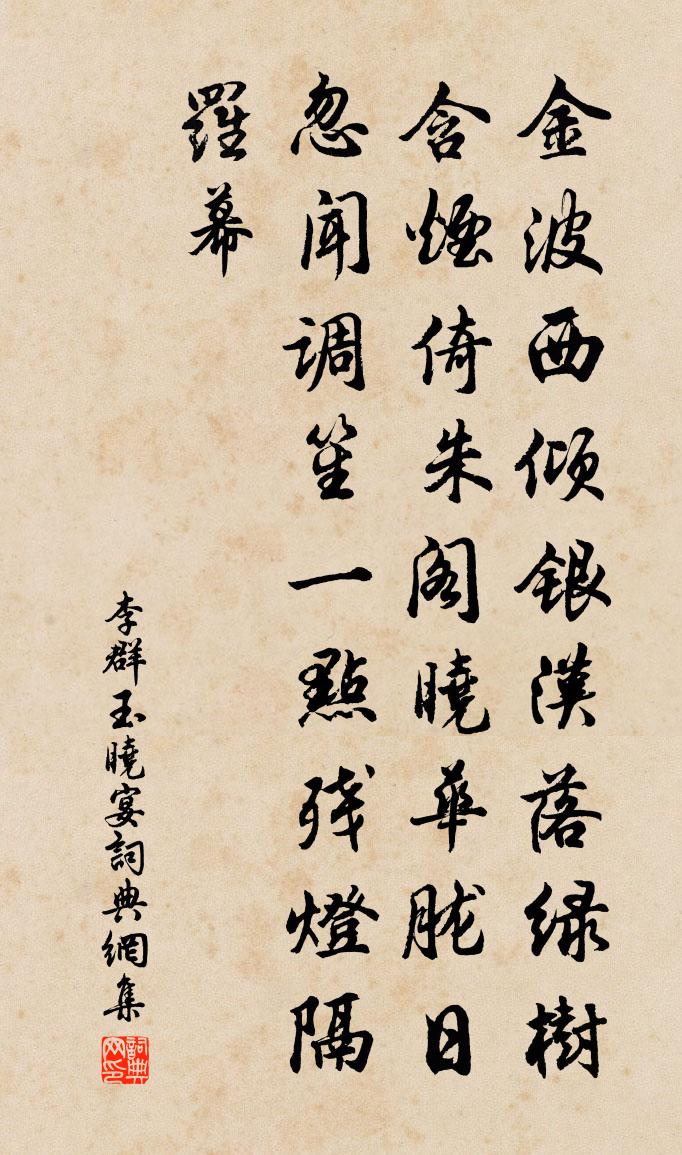 金波西倾銀漢落绿樹
含煙倚朱阁曉華朧日
忽闻调笙一點残燈隔
羅幕
李群玉曉宴詞典網集
詞典网印